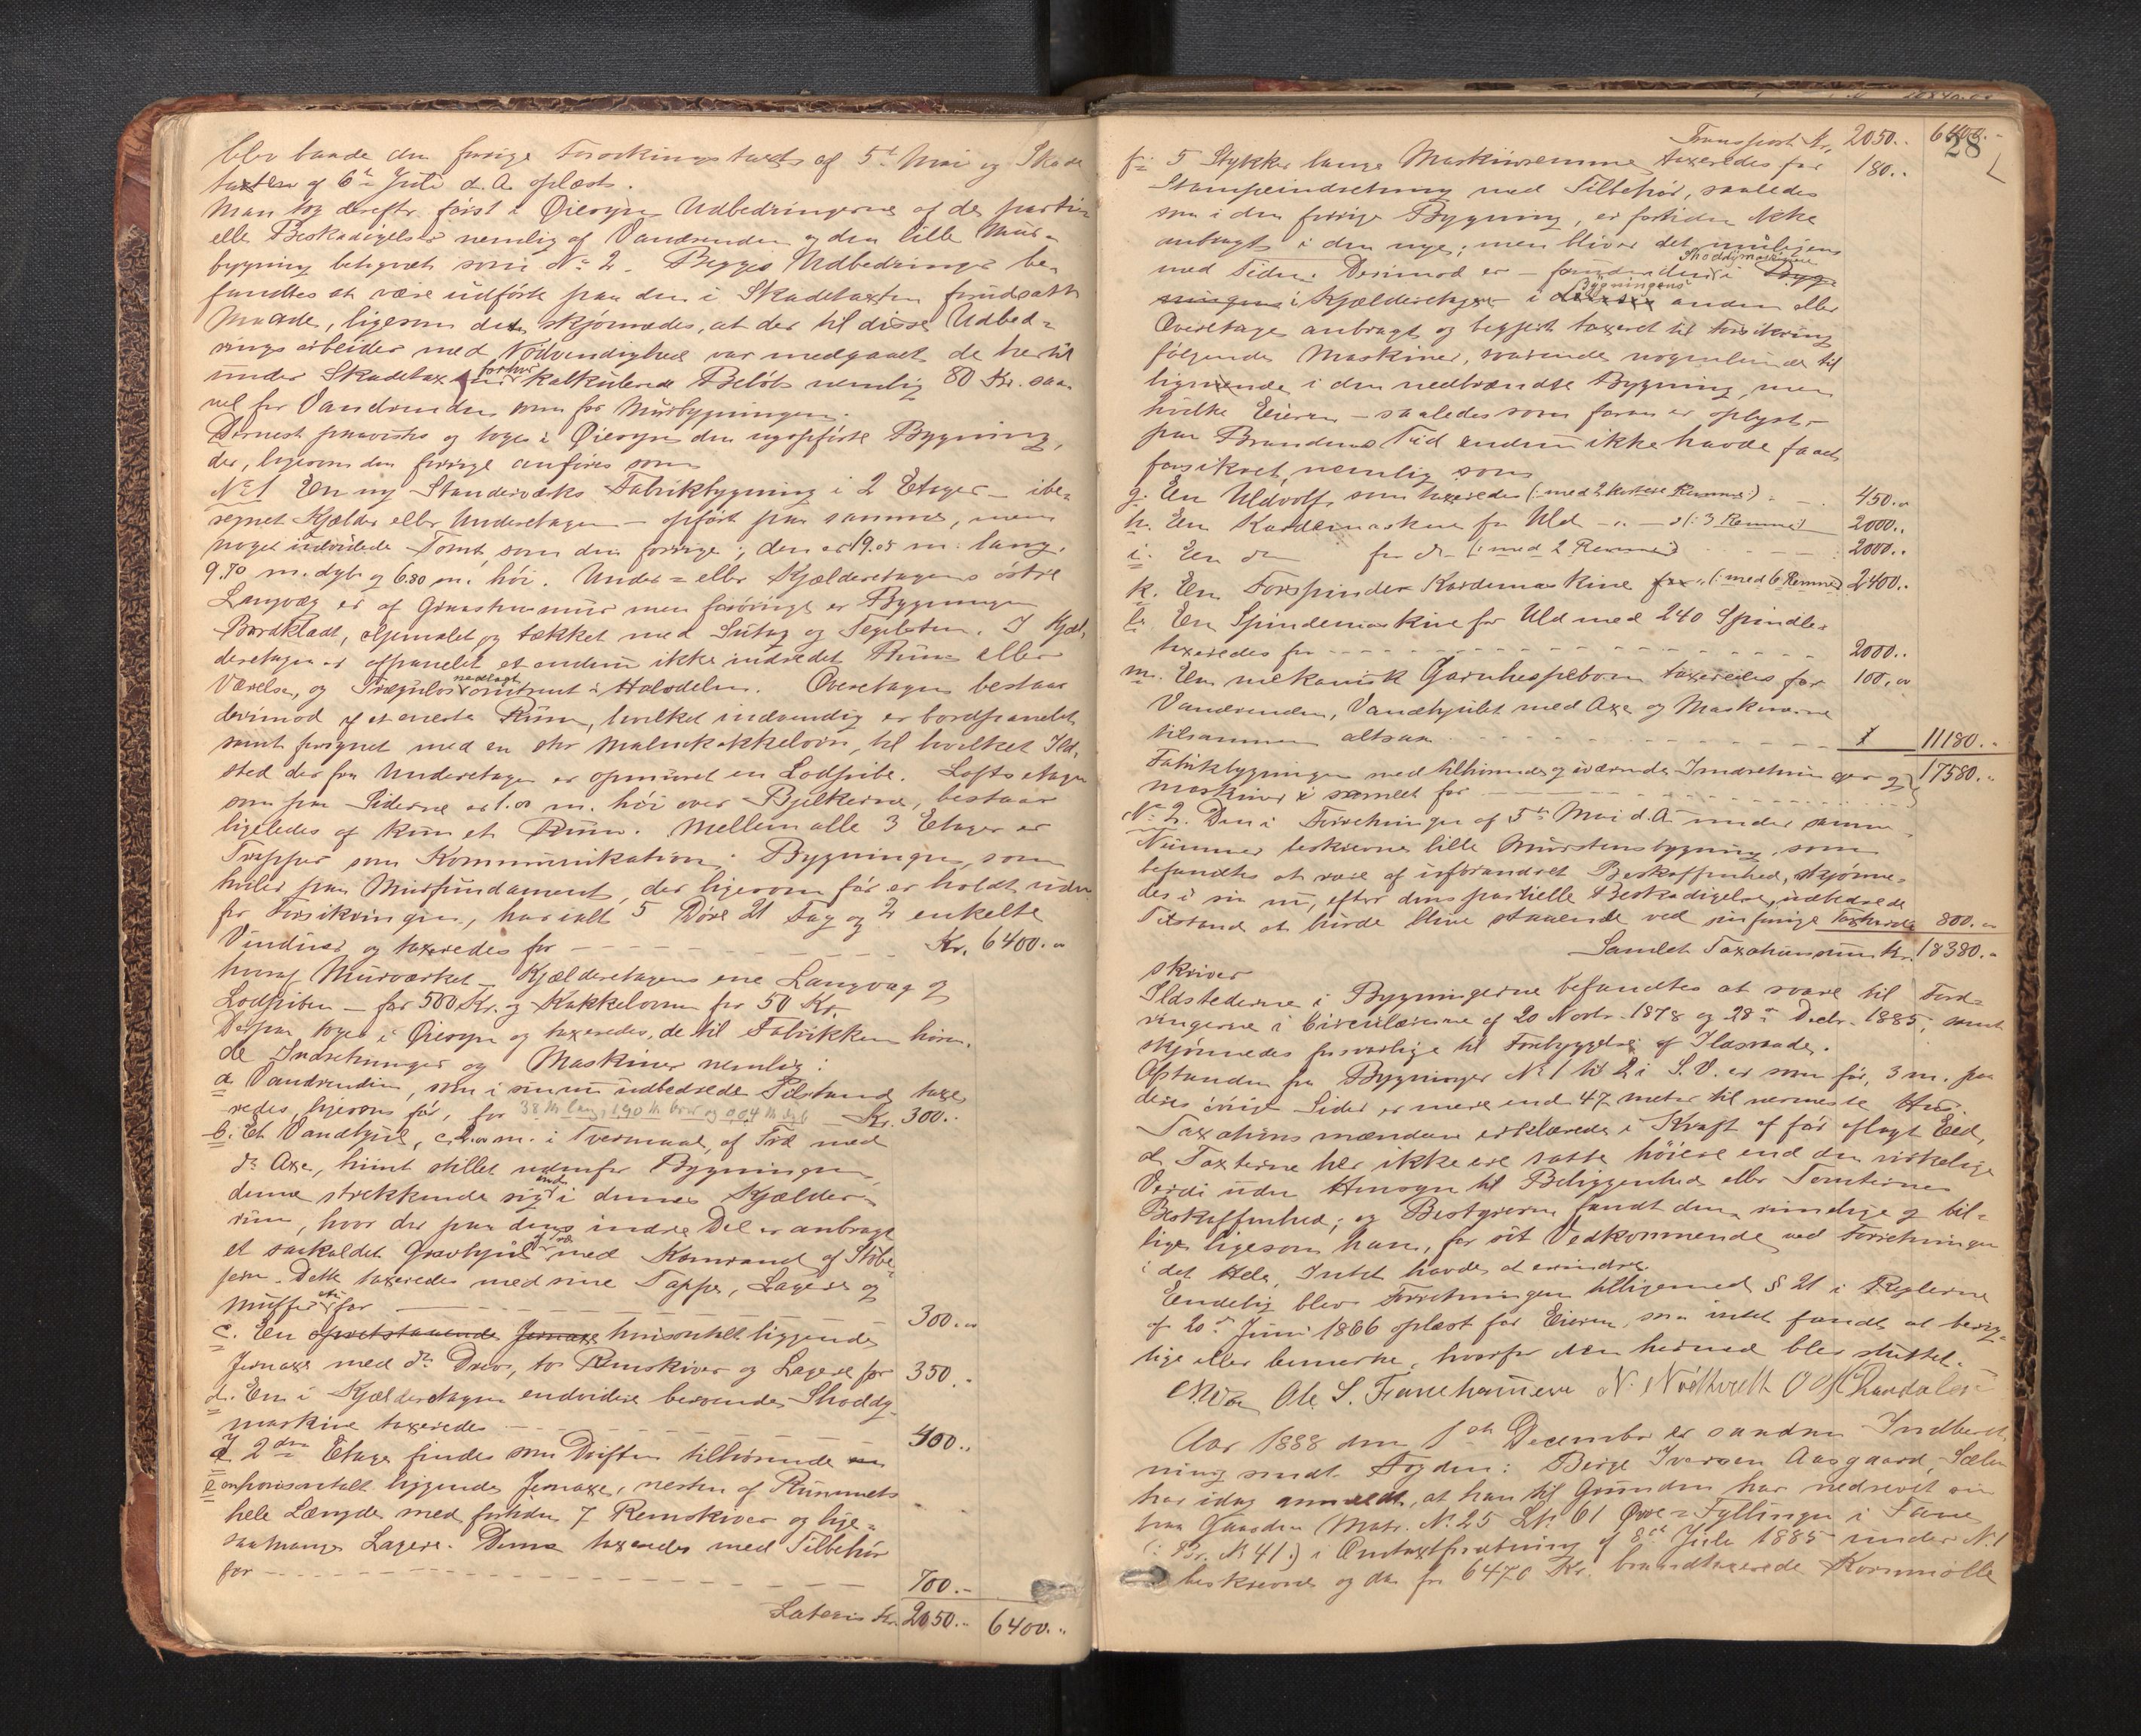 blev baade den forrige Forsikringstaxt af 5te Mai og Skade
taxten af 6te Juli d. A. oplæst.
Man tog derefter først i Øiesyn Udbedringerne af de parti-
elle Beskadigelser nemlig af Vandrenden og den lille Mur-
bygning betegnet som No 2. Begges Udbedringer be-
fandtes at være udførte paa den i Skadetaxten forudsatte
Maade, ligesom det skjønnedes, at der til disse Udbed-
ringsarbeider med Nødvendighed var medgaaet de hertil
under Skadetaxten forhver kalkulerede Beløb nemlig 80 Kr. saa
vel for Vandrenden som for Murbygningen.
Dernest paavistes og toges i Øiesyn den nyopførte Bygning,
der, ligesom den forrige anføres som
No 1 En ny Standerværks Fabrikbygning i 2 Etager – ibe-
regnet Kjælder eller Underetagen – opført paa samme, men
noget udvidede Tomt som den forrige; den er 19.05 m. lang,
9.70 m. dyb og 6.80 m. høi. Under- eller Kjælderetagens østre
Langvæg er af Graastensmur men forøvrigt er Bygningen
Bordklædt, oljemalet og tækket med Sutag og Teglsten. I Kjæl-
deretagen er afpanelet et endnu ikke indredet Rum eller
Værelse, og Trægulv nedlagt omtrent i Halvdelen. Overetagen bestaar
derimod af et eneste Rum, hvilket indvendig er bordpanelet
samt forsynet med en stor Malmkakkelovn, til hvilket Ild-
sted der fra Underetagen er opmuret en Lodpibe. Loftsetagen
som paa Siderne er 1.00 m. høi over Bjelkerne, bestaar
ligeledes af kun et Rum. Mellem alle 3 Etager er
Trapper som Kommunikation. Bygningen, som
hviler paa Murfundament, der ligesom før er holdt uden
for Forsikringen, har ialt 5 Døre 21 Fag og 2 enkelte
Vinduer og taxeredes for – – – Kr. 6400.00
hvoraf Murværket – Kjælderetagens ene Langvæg og
Lodpiben – for 500 Kr. og Kakkelovnen for 50 Kr.
Derpaa toges i Øiesyn og taxeredes, de til Fabrikken høren-
de Indretninger og Maskiner nemlig:
a. Vandrenden, som i sin nu udbedrede Tilstand taxe-
redes, ligesom før, for 38 M lang, 1,90 M bred og 0,04 M dyb Kr. 300..
b. Et Vandhjul, c. m. i Tvermaal, af Træ med
do Axe, hiint stillet udenfor Bygningen,
denne strekkende sig ind i dennes Kjælder-
rum, hvor der paa dens indre Del er anbragt
et saakaldet Gravhjul af Træ med Kamrand af Støbe-
jern. Dette taxeredes med sine Tapper, Lagere og
Muffer etc. for – – – 300.00
c. En opretstaaende Jernaxe horisontalt liggende
Jernaxe med do Drev, to Remskiver og Lagere for 350.-
d. En i Kjælderetagen endvidere beroende Shoddy-
maskine taxeredes – – – 400..
I 2den Etage findes som Driften tilhørende en
e en horisontalt liggende Jernaxe, nesten af Rummets
hele Længde med fortiden 7 Remskiver og lige-
saamange Lagere. Denne taxeredes med Tilbehør
for – – – 700.-
Lateris Kr. 2050.. 6400..
28
Transport Kr. 2050.. 6400.-
f. 5 Stykker lange Maskinremme taxeredes for 180..
Stampeindretning med Tilbehør, saaledes
som i den forrige Bygning, er fortiden ikke
anbragt i den nye, men bliver det muligens
med Tiden. Derimod er – foruden den Shoddymaskine i Byg-
ningens i Kjælderetagen – i Bygningens anden eller
Overetage anbragt og begjært taxeret til Forsikring
følgende Maskiner, svarende nogenlunde til
lignende i den nedbrændte Bygning, men
hvilke Eieren – saaledes som foran er oplyst –
paa Brandens Tid endnu ikke havde faaet
forsikret, nemlig som
g. En Uldvolf, som taxeredes (: med 2 kortere Remme :) – 450.00
h. En Kardemaskine for Uld – „ – (: 3 Remme :) 2000..
i. En do for do (: med 2 Remme :) – – – 2000..
k. En Forspinder Kardemaskine for „ (: med 6 Remme :) 2400..
l. En Spindemaskine for Uld med 240 Spindler
taxeredes for – – – 2000..
m. En mekanisk Garnhespebom taxeredes for 100,00
Vandrenden, Vandhjulet med Axe og Maskinerne
tilsammen altsaa – – – 11180..
Fabrikbygningen med tilhørende og iværende Indretninger og
Maskiner samlet for – – – 17580..
No 2. Den i Forretningen af 5te Mai d. A. under samme
Nummer beskrevne lille Murstensbygning, som
befandtes at være af uforandret Beskaffenhed, skjønne-
des i sin nu, efter dens partielle Beskadigelse, udbedrede
Tilstand at burde blive staaende ved sin forrige Taxtværdi 800.00
Samlet Taxationssum Kr. 18380.-
skriver
Ildstederne i Bygningerne befandtes at svare til Ford-
ringerne i Circulærerne af 20 Novbr. 1878 og 28de Decbr. 1885, samt
skjønnedes forsvarlige til Forebyggelse af Ildsvaade.
Afstanden fra Bygningen No 1 til 2 i S. V. er som før, 3 m. paa
deres øvrige Sider er mere end 47 meter til nærmeste Hus.
Taxationsmændene erklærede i Kraft af før aflagt Eed,
at Taxterne her ikke ere satte høiere end den virkelige
Værdi uden Hensyn til Beliggenhed eller Tomternes
Beskaffenhed; og Bestyreren fandt dem rimelige og bil-
lige ligesom han, for sit Vedkommende ved Forretningen
i det Hele, Intet havde at erindre.
Endelig blev Forretningen tilligemed § 21 i Reglerne
af 20de Juni 1866 oplæst for Eieren, som intet fandt at berig-
tige eller bemerke, hvorfor den hermed blev sluttet.
Ole S. N. Nøttveit
Aar 1888 den 1ste December er saadan Indberet-
ning sendt Fogden: Børge Iversen Aasgaard, Sælen
har idag anmeldt, at han til Grunden har nedrevet sin
paa Gaarden Matr. No 25 Lb. 61 Øvre-Fyllingen i Fane
(: Br. No 41.) i Omtaxtforretning af 8de Juli 1885 under No. 1
beskrevne og da for 6470 Kr. brandtaxerede Kornmølle